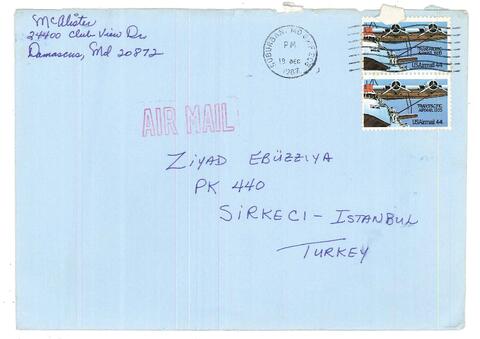 McAlister
24400 Club View Dr.
Damascus, Md 20872
SUBURBAN, MD
PM
19 DEC
1987
TRANSPACIFIC
AIRMAIL 1935
USAirmail 44
TRANSPACIFIC
AIRMAIL 1935
USAirmail 44
AIR MAIL
ZIYAD EBÜZZIYA
PK 440
SIRKECI - ISTANBUL
TURKEY